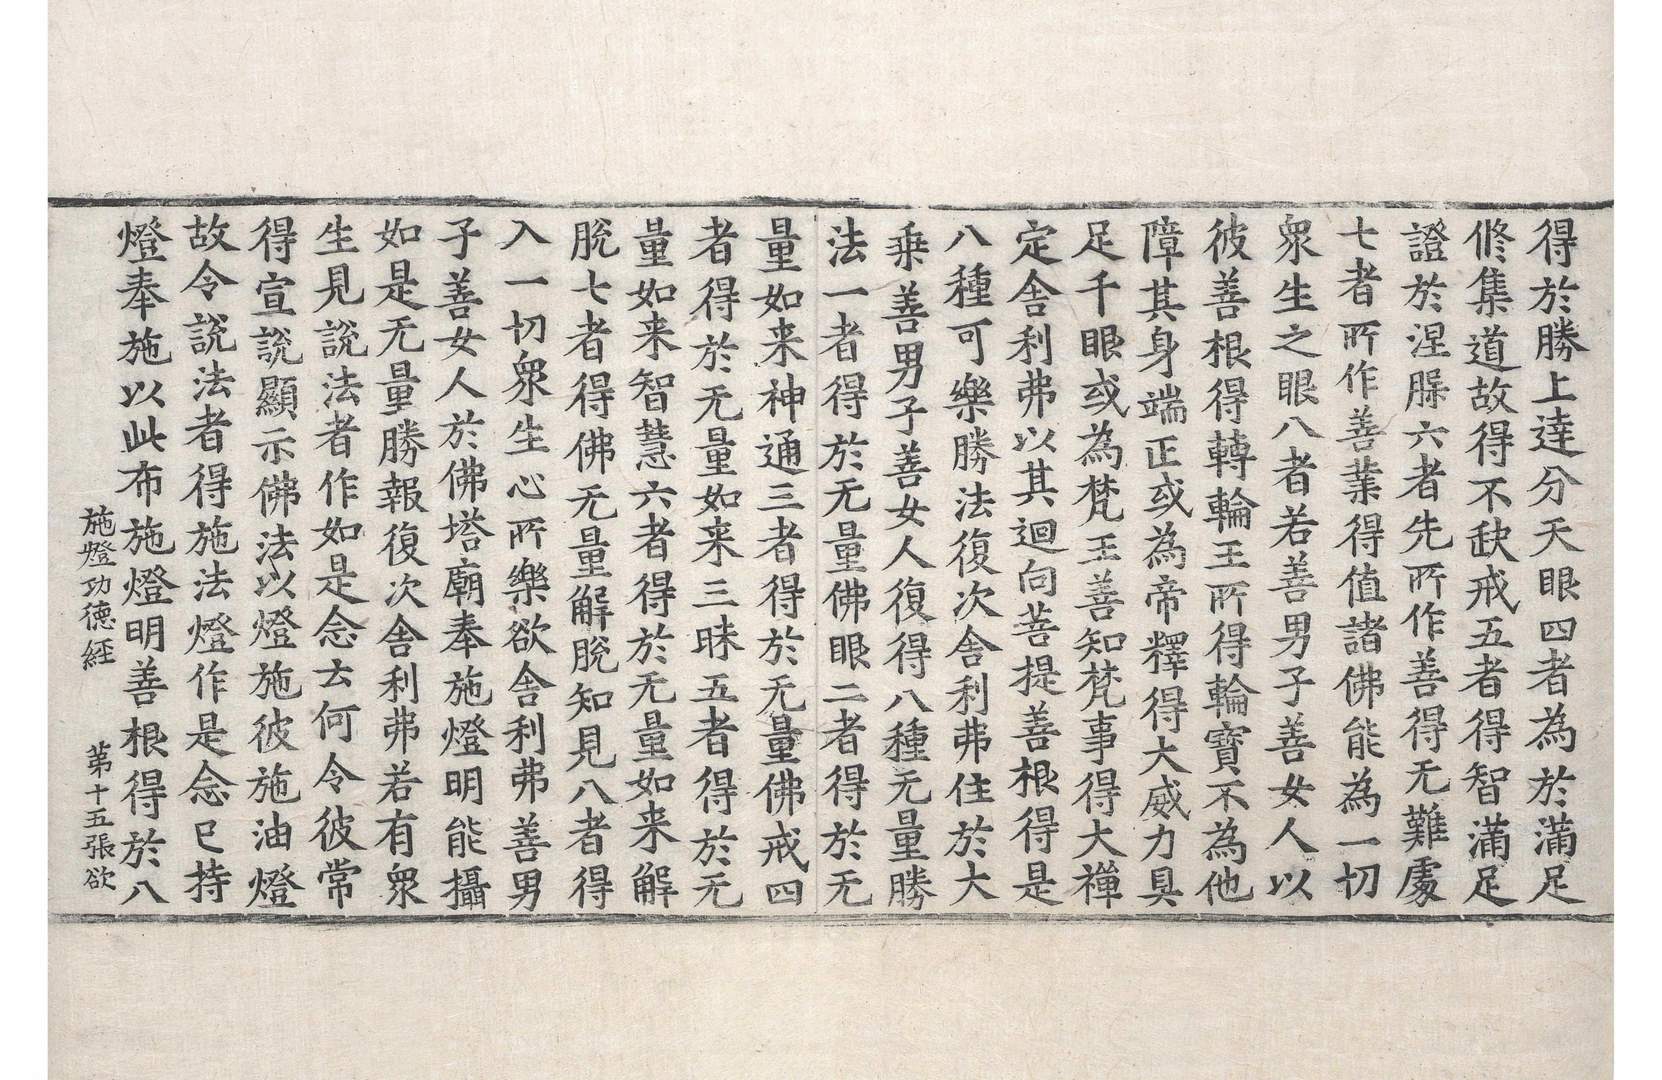 得於勝上達分天眼四者為於滿足
修集道故得不缺戒五者得智滿足
證於涅槃六者先所作善得无難處
七者所作善業得值諸佛能為一切
眾生之眼八者若善男子善女人以
彼善根得轉輪王所得輪寶不為他
障其身端正或為帝釋得大威力具
足千眼或為梵王善知梵事得大禪
定舍利弗以其迴向菩提善根得是
八種可樂勝法復次舍利弗住於大
乗善男子善女人復得八種无量勝
法一者得於无量佛眼二者得於无
量如来神通三者得於无量佛戒四
者得於无量如来三昧五者得於无
量如来智慧六者得於无量如来解
脫七者得佛无量解脫知見八者得
入一切眾生心所樂欲舍利弗善男
子善女人於佛塔廟奉施燈明能攝
如是无量勝報復次舍利弗若有眾
生見說法者作如是念云何令彼常
得宣說顯示佛法以燈施彼施油燈
故令說法者得施法燈作是念已持
燈奉施以此布施燈明善根得於八
施燈功德經 苐十五張欲